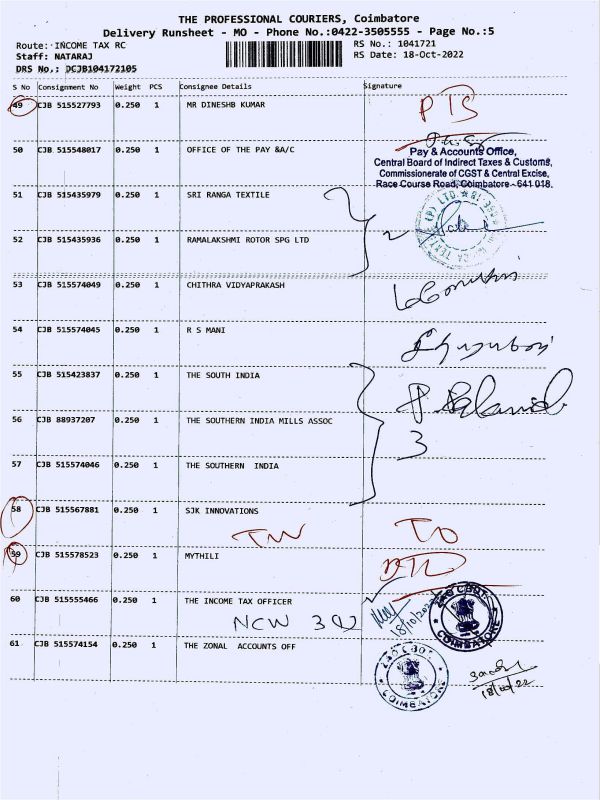 THE PROFESSIONAL COURIERS, Coimbatore
Delivery Runsheet - MO - Phone No.:0422-3505555 - Page No.:5
Route: INCOME TAX RC RS No.: 1041721
Staff: NATARAJ RS Date: 18-Oct-2022
DRS No.: DCJB104172105
S No Consignment No Weight PCS Consignee Details Signature
49 CJB 515527793 0.250 1 MR DINESHB KUMAR
50 CJB 515548017 0.250 1 OFFICE OF THE PAY &A/C
Pay & Accounts Office,
Central Board of Indirect Taxes & Customs,
Commissionerate of CGST & Central Excise,
Race Course Road, Coimbatore - 641 018.
51 CJB 515435979 0.250 1 SRI RANGA TEXTILE
2
52 CJB 515435936 0.250 1 RAMALAKSHMI ROTOR SPG LTD
53 CJB 515574049 0.250 1 CHITHRA VIDYAPRAKASH
54 CJB 515574045 0.250 1 R S MANI
55 CJB 515423837 0.250 1 THE SOUTH INDIA
56 CJB 88937207 0.250 1 THE SOUTHERN INDIA MILLS ASSOC
3
57 CJB 515574046 0.250 1 THE SOUTHERN INDIA
58 CJB 515567881 0.250 1 SJK INNOVATIONS
59 CJB 515578523 0.250 1 MYTHILI
60 CJB 515555466 0.250 1 THE INCOME TAX OFFICER
18/10/2022
ZAO CBDT
COIMBATORE
61 CJB 515574154 0.250 1 THE ZONAL ACCOUNTS OFF
ZAO CBDT
COIMBATORE